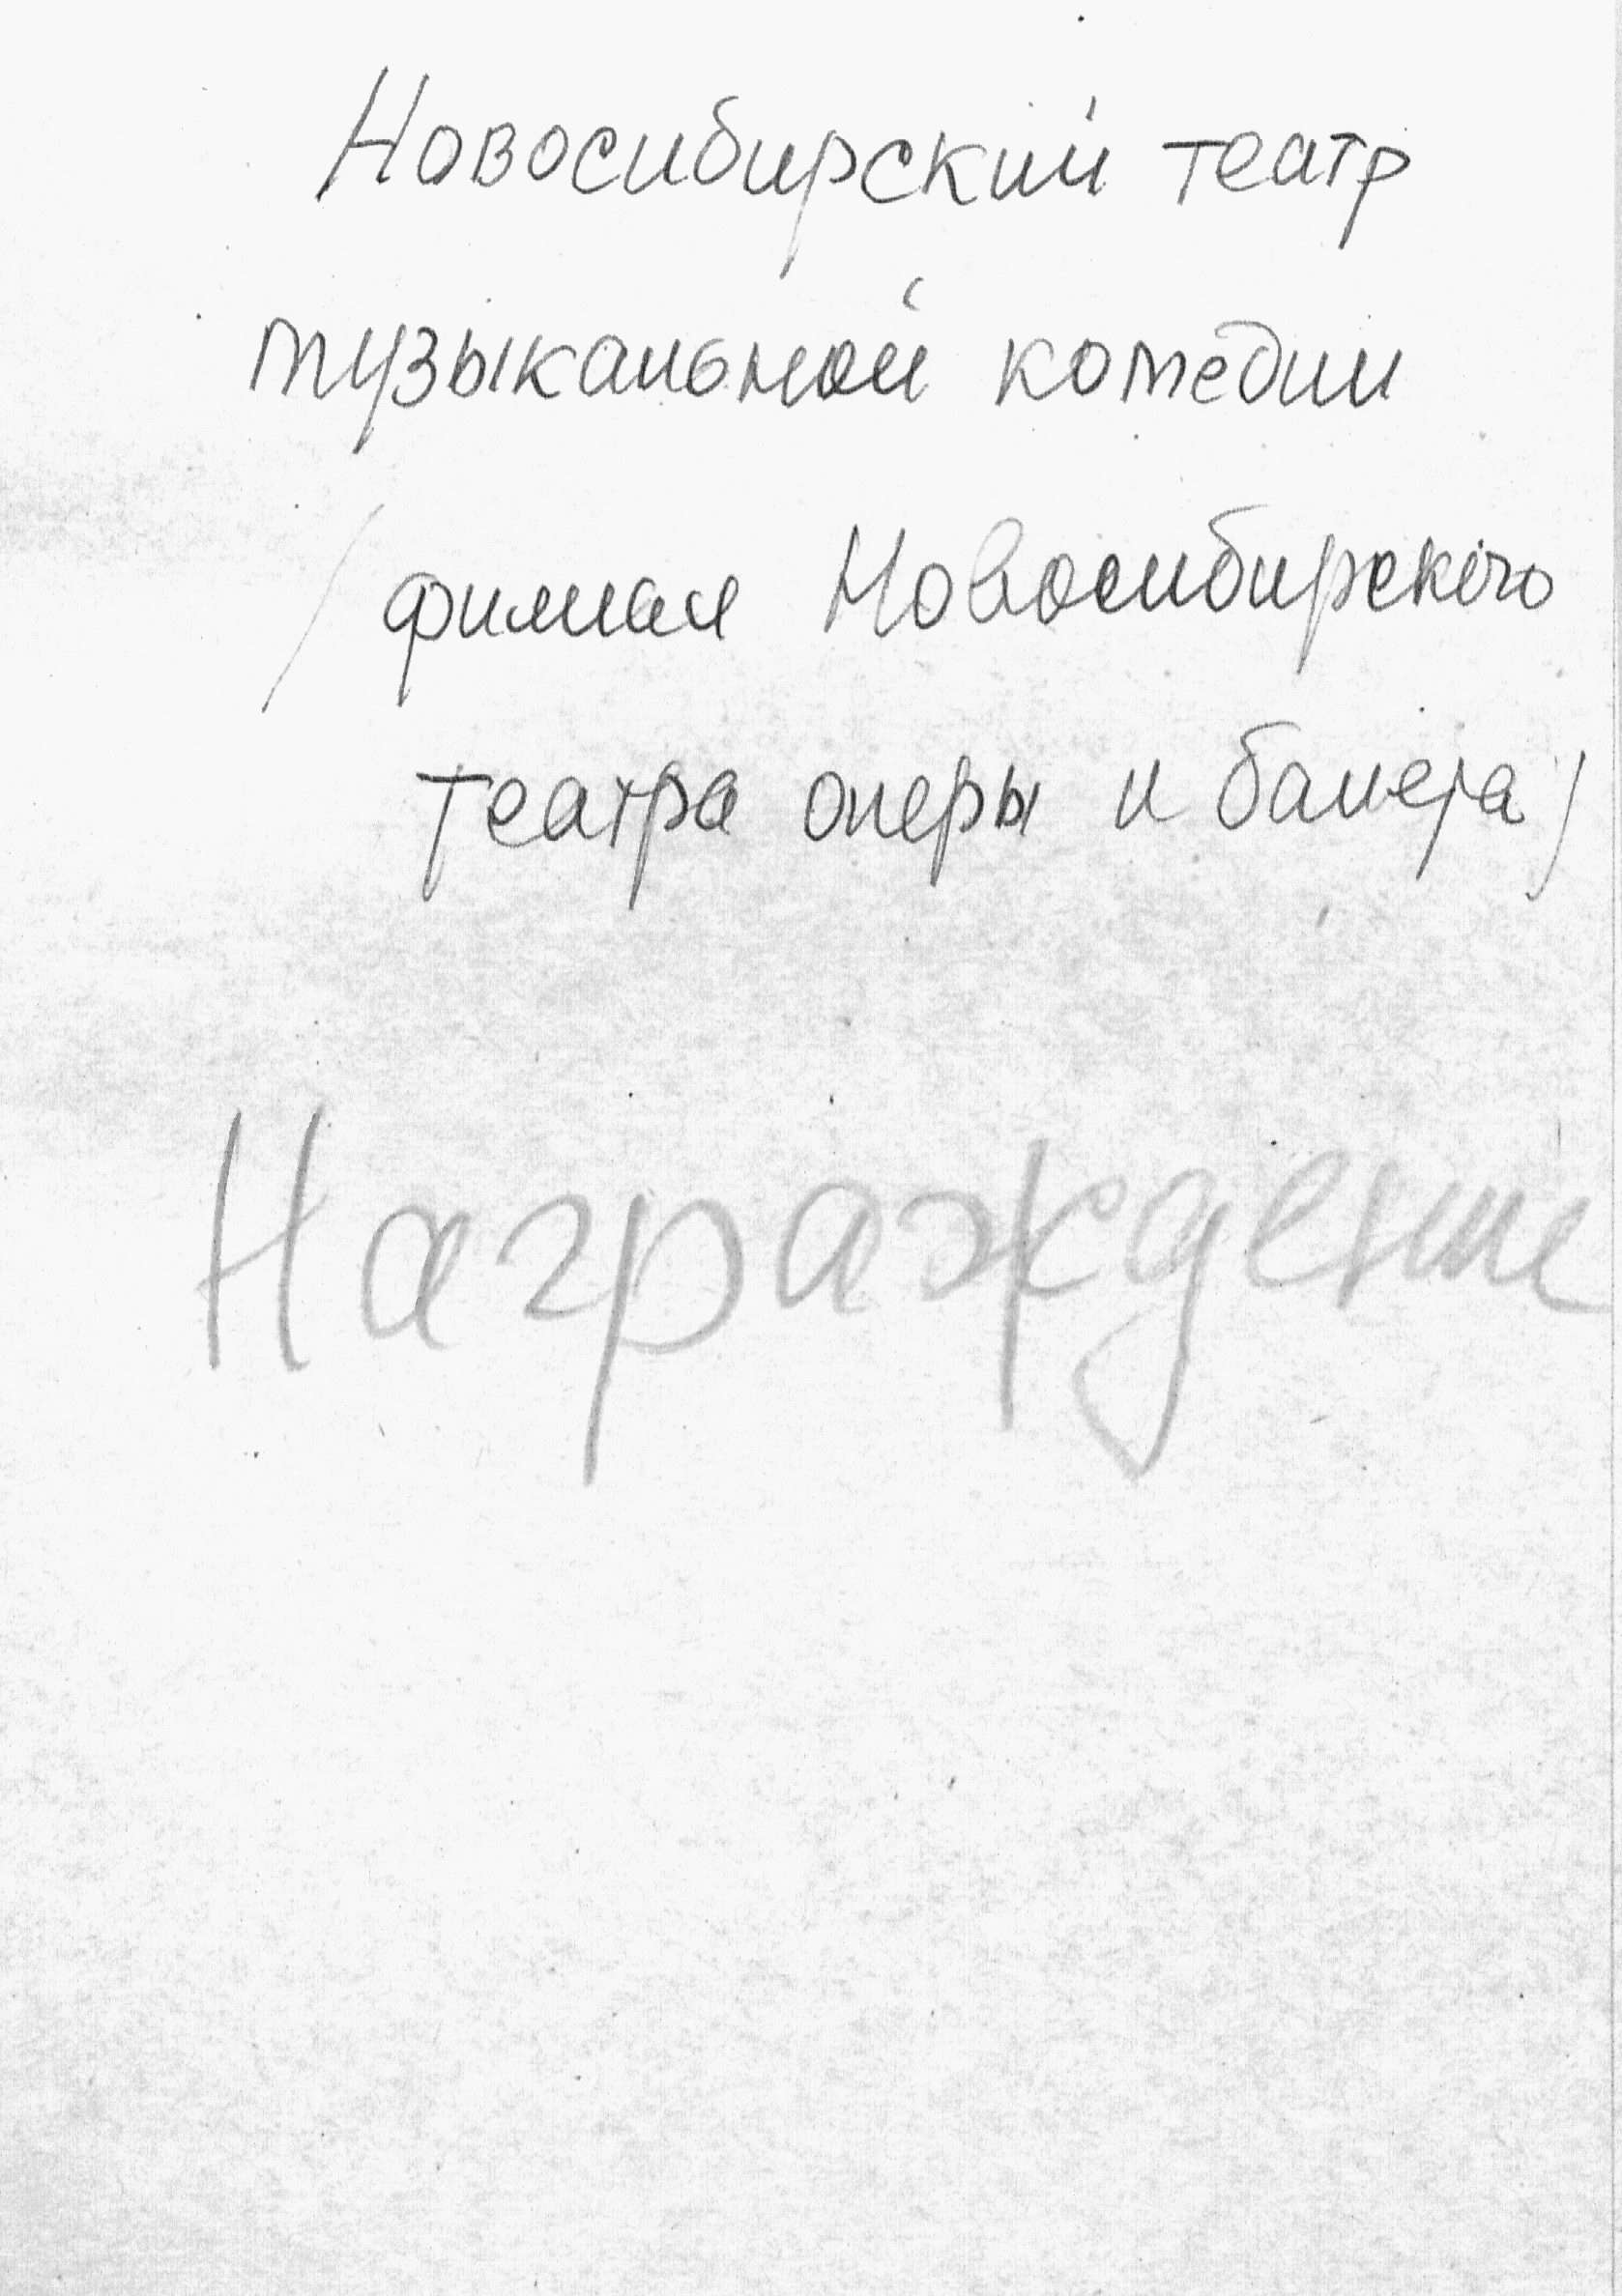 Новосибирский театр
музыкальной комедии
/филиал Новосибирского
театра оперы и балета/
Награждение